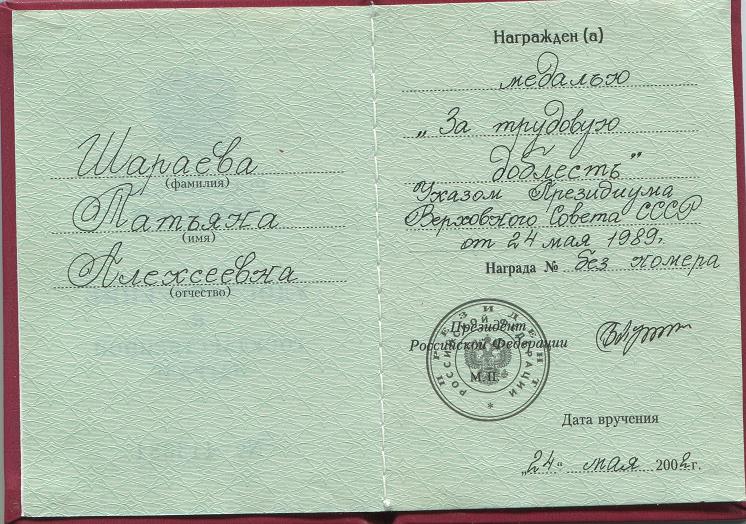 Шараева
(фамилия)
Татьяна
(имя)
Алексеевна
(отчество)
Награжден (а)
медалью
„За трудовую
доблесть"
Указом Президиума
Верховного Совета СССР
от 24 мая 1989г.
Награда № без номера
ПРЕЗИДЕНТ
РОССИЙСКОЙ ФЕДЕРАЦИИ
Президент
Российской Федерации
М.П.
Дата вручения
„24" мая 2002 г.